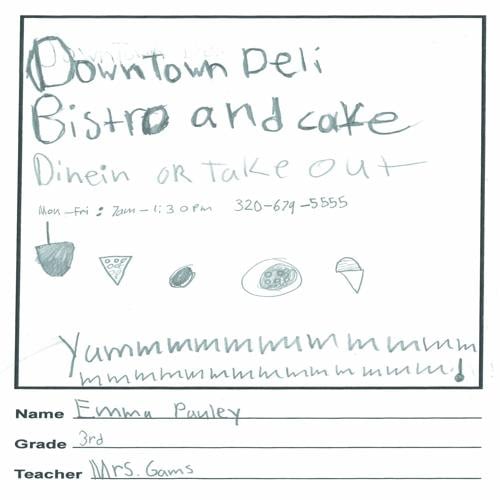 Downtown Deli
Bistro and cake
Dinein or take out
Mon-Fri: 7am-1:30pm 320-679-5555
Yummmmmmmmmmmmm
mmmmmmmmmmmmmm!
Name Emma Pauley
Grade 3rd
Teacher Mrs. Gams